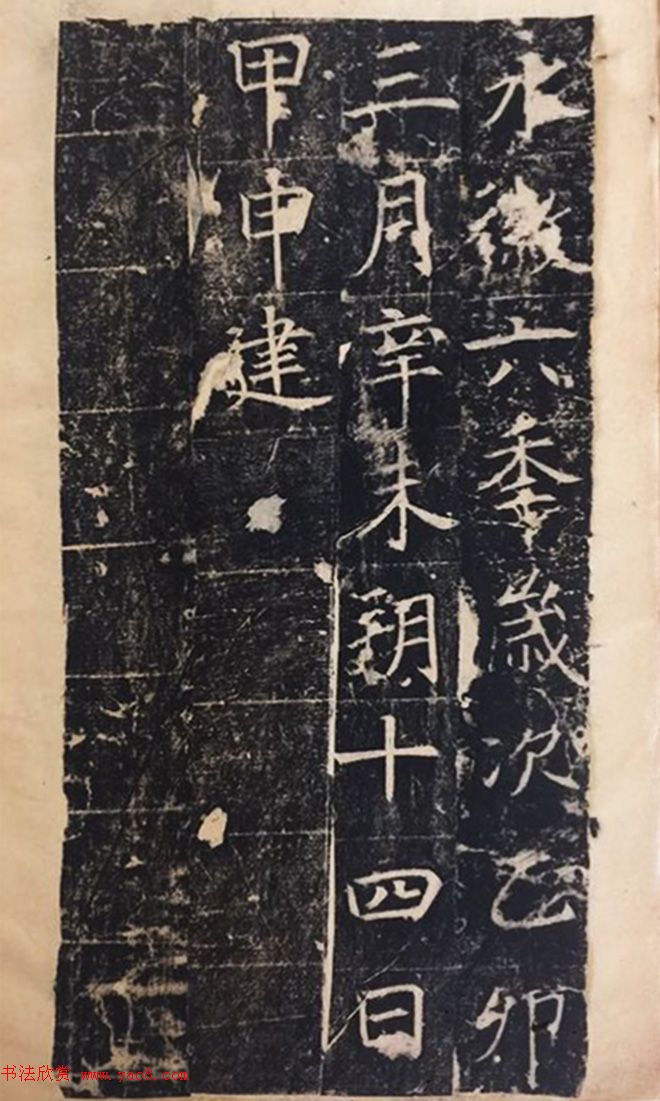 永徽六年歲次乙卯
三月辛未朔十四日
甲申建
书法欣赏 www.yac8.com